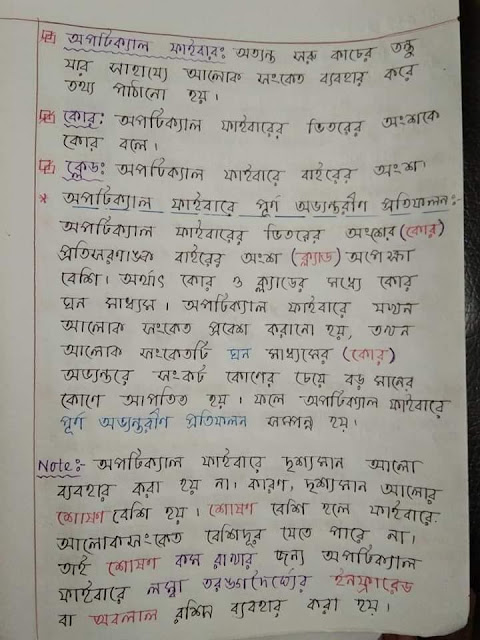 অপটিক্যাল ফাইবারঃ অত্যন্ত সরু কাচের তন্তু
যার সাহায্যে আলোক সংকেত ব্যবহার করে
তথ্য পাঠানো হয়।
কোরঃ অপটিক্যাল ফাইবারের ভিতরের অংশকে
কোর বলে।
ক্লেডঃ অপটিক্যাল ফাইবারে বাইরের অংশ।
* অপটিক্যাল ফাইবারে পূর্ণ অভ্যন্তরীণ প্রতিফলনঃ-
অপটিক্যাল ফাইবারের ভিতরের অংশের (কোর)
প্রতিসরণাঙ্ক বাইরের অংশ (ক্ল্যাড) অপেক্ষা
বেশি। অর্থাৎ কোর ও ক্ল্যাডের মধ্যে কোর
ঘন মাধ্যম। অপটিক্যাল ফাইবারে যখন
আলোক সংকেত প্রবেশ করানো হয়, তখন
আলোক সংকেতটি ঘন মাধ্যমের (কোর)
অভ্যন্তরে সংকট কোণের চেয়ে বড় মানের
কোণে আপতিত হয়। ফলে অপটিক্যাল ফাইবারে
পূর্ণ অভ্যন্তরীণ প্রতিফলন সম্পন্ন হয়।
Note:- অপটিক্যাল ফাইবারে দৃশ্যমান আলো
ব্যবহার করা হয় না। কারণ, দৃশ্যমান আলোর
শোষণ বেশি হয়। শোষণ বেশি হলে ফাইবারে
আলোকসংকেত বেশিদূর যেতে পারে না।
তাই শোষণ কম রাখার জন্য অপটিক্যাল
ফাইবারে লম্বা তরঙ্গদৈর্ঘ্যের ইনফ্রারেড
বা অবলাল রশ্মি ব্যবহার করা হয়।